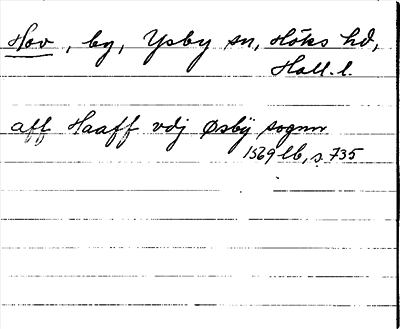 Hov, by, Ysby sn, Höks hd,
Hall. l.
aff Haaff vdj Øsbÿ sognn
1569 lb, s. 735